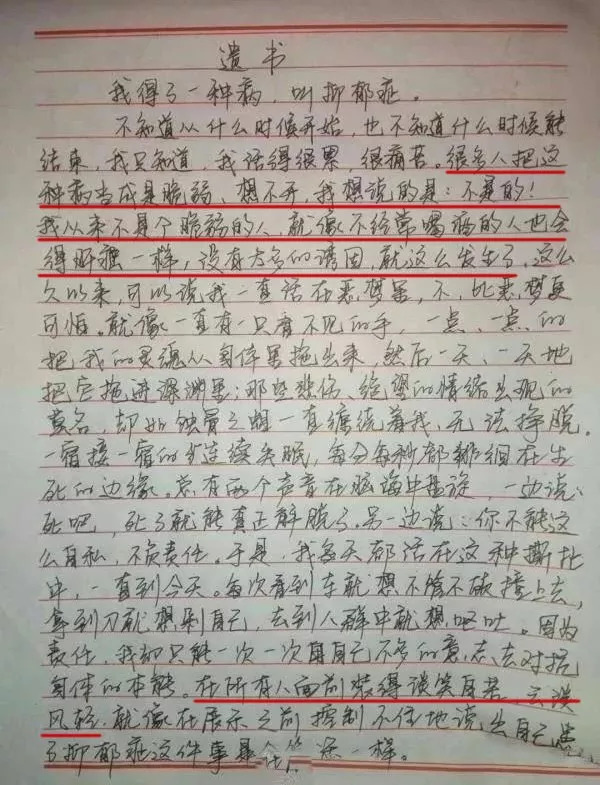 遗书
我得了一种病，叫抑郁症。
不知道从什么时候开始，也不知道什么时候能
结束，我只知道，我活得很累，很痛苦。很多人把这
种病当成是脆弱、想不开，我想说的是：不是的！
我从来不是个脆弱的人，就像不经常喝酒的人也会
得肝癌一样，没有太多的诱因，就这么发生了，这么
久以来，可以说我一直活在恶梦里，不，比恶梦更
可怕。就像一直有一只看不见的手，一点、一点的
把我的灵魂从身体里拖出来，然后一天、一天地
把它拖进深渊里；那些悲伤、绝望的情绪出现的
莫名，却如蚀骨之蛆一直缠绕着我，无法挣脱。
一宿接一宿的连续失眠，每分每秒都徘徊在生
死的边缘。总有两个声音在脑海中盘旋，一边说：
死吧，死了就能真正解脱了。另一边说：你不能这
么自私，不负责任。于是，我每天都活在这种撕扯
中，一直到今天。每次看到车就想不管不顾撞上去，
拿到刀就想剁自己，去到人群中就想呕吐。因为
责任，我却只能一次一次用自己不多的意志去对抗
身体的本能。在所有人面前装得谈笑自若、云淡
风轻，就像在展示之前控制不住地说出自己患
了抑郁症这件事是一样。